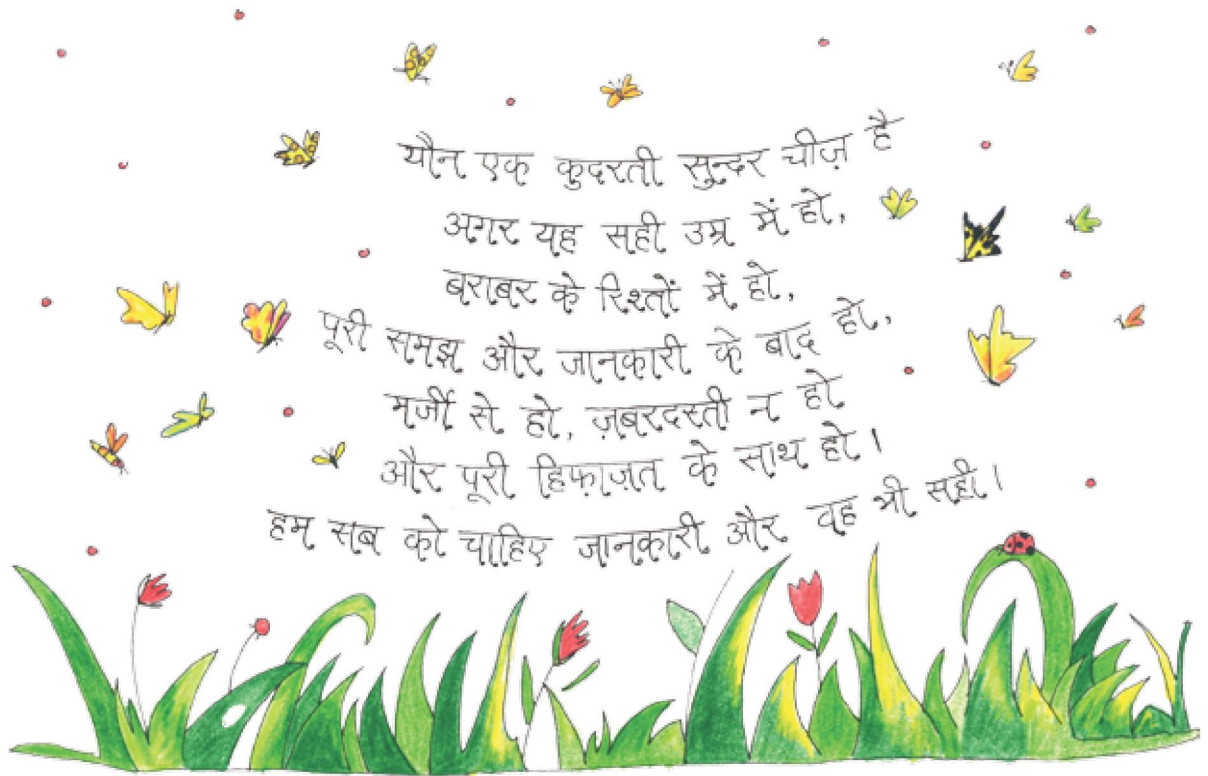 यौन एक कुदरती सुन्दर चीज़ है
अगर यह सही उम्र में हो,
बराबर के रिश्तों में हो,
पूरी समझ और जानकारी के बाद हो,
मर्जी से हो, ज़बरदस्ती न हो
और पूरी हिफ़ाज़त के साथ हो।
हम सब को चाहिए जानकारी और वह भी सही।